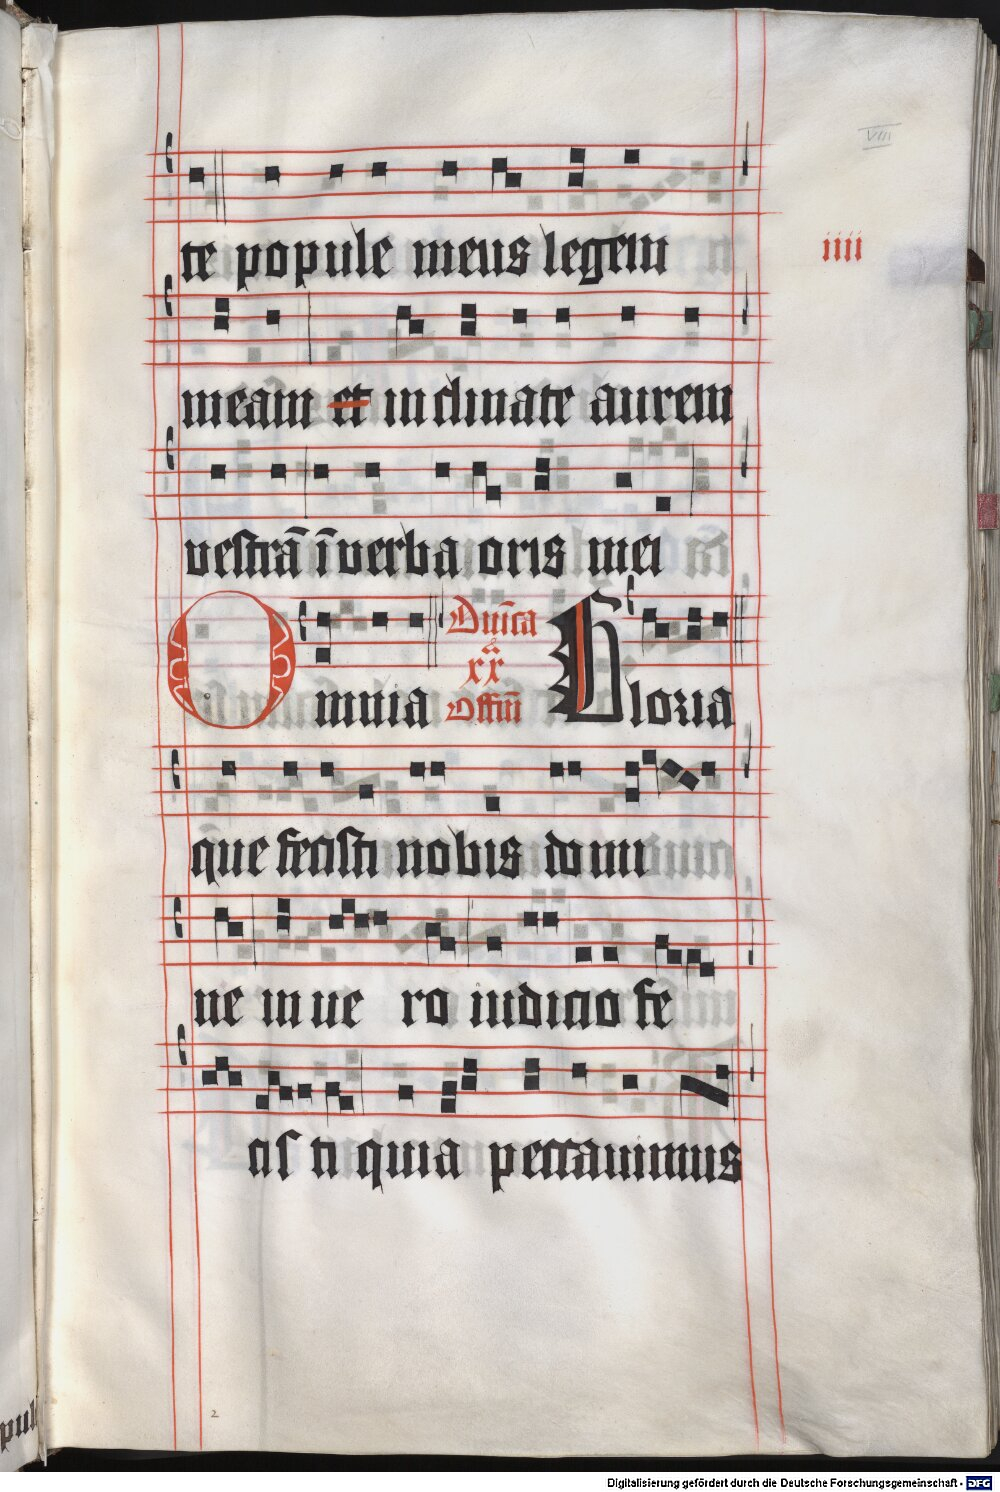 VIII
te popule meus legem
iiii
meam et inclinate aurem
vestrā ī verba oris mei
Omnia Dn̄ica xx Offm̄ Gloria
que fecisti nobis domi
ne in ue ro iudicio fe
cis ti quia peccauimus
2
Digitalisierung gefördert durch die Deutsche Forschungsgemeinschaft - DFG